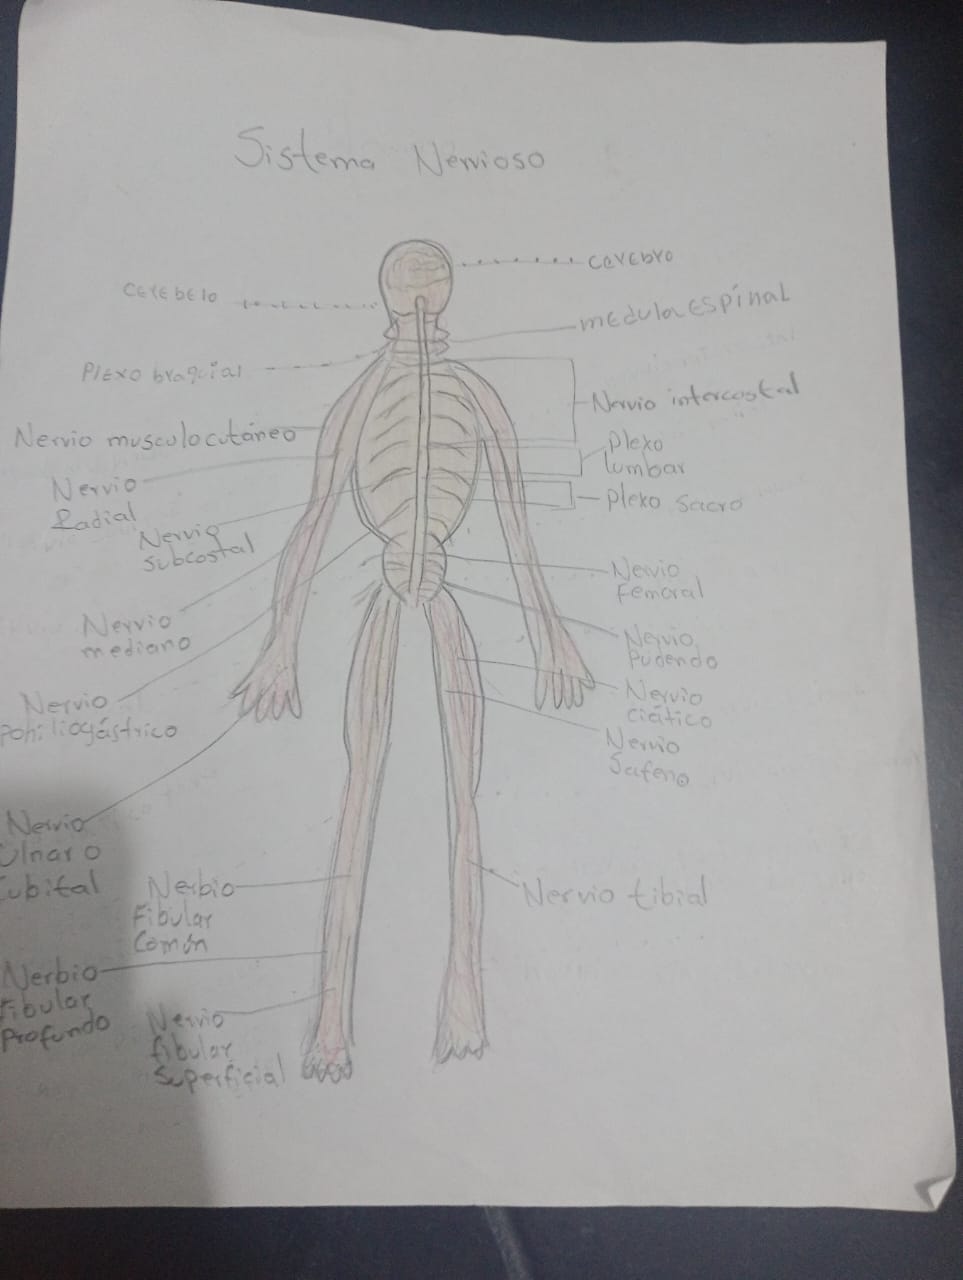 Sistema Nervioso
cerebro
cerebelo
medula espinal
Plexo braquial
Nervio intercostal
Nervio musculocutáneo
Plexo
lumbar
Nervio
Radial
Plexo sacro
Nervio
subcostal
Nervio
femoral
Nervio
mediano
Nervio
Pudendo
Nervio
ciático
Nervio
pohiliogástrico
Nervio
Safeno
Nervio
Ulnar o
Cubital
Nerbio
Fibular
Común
Nervio tibial
Nerbio
Fibular
Profundo
Nervio
fibular
superficial